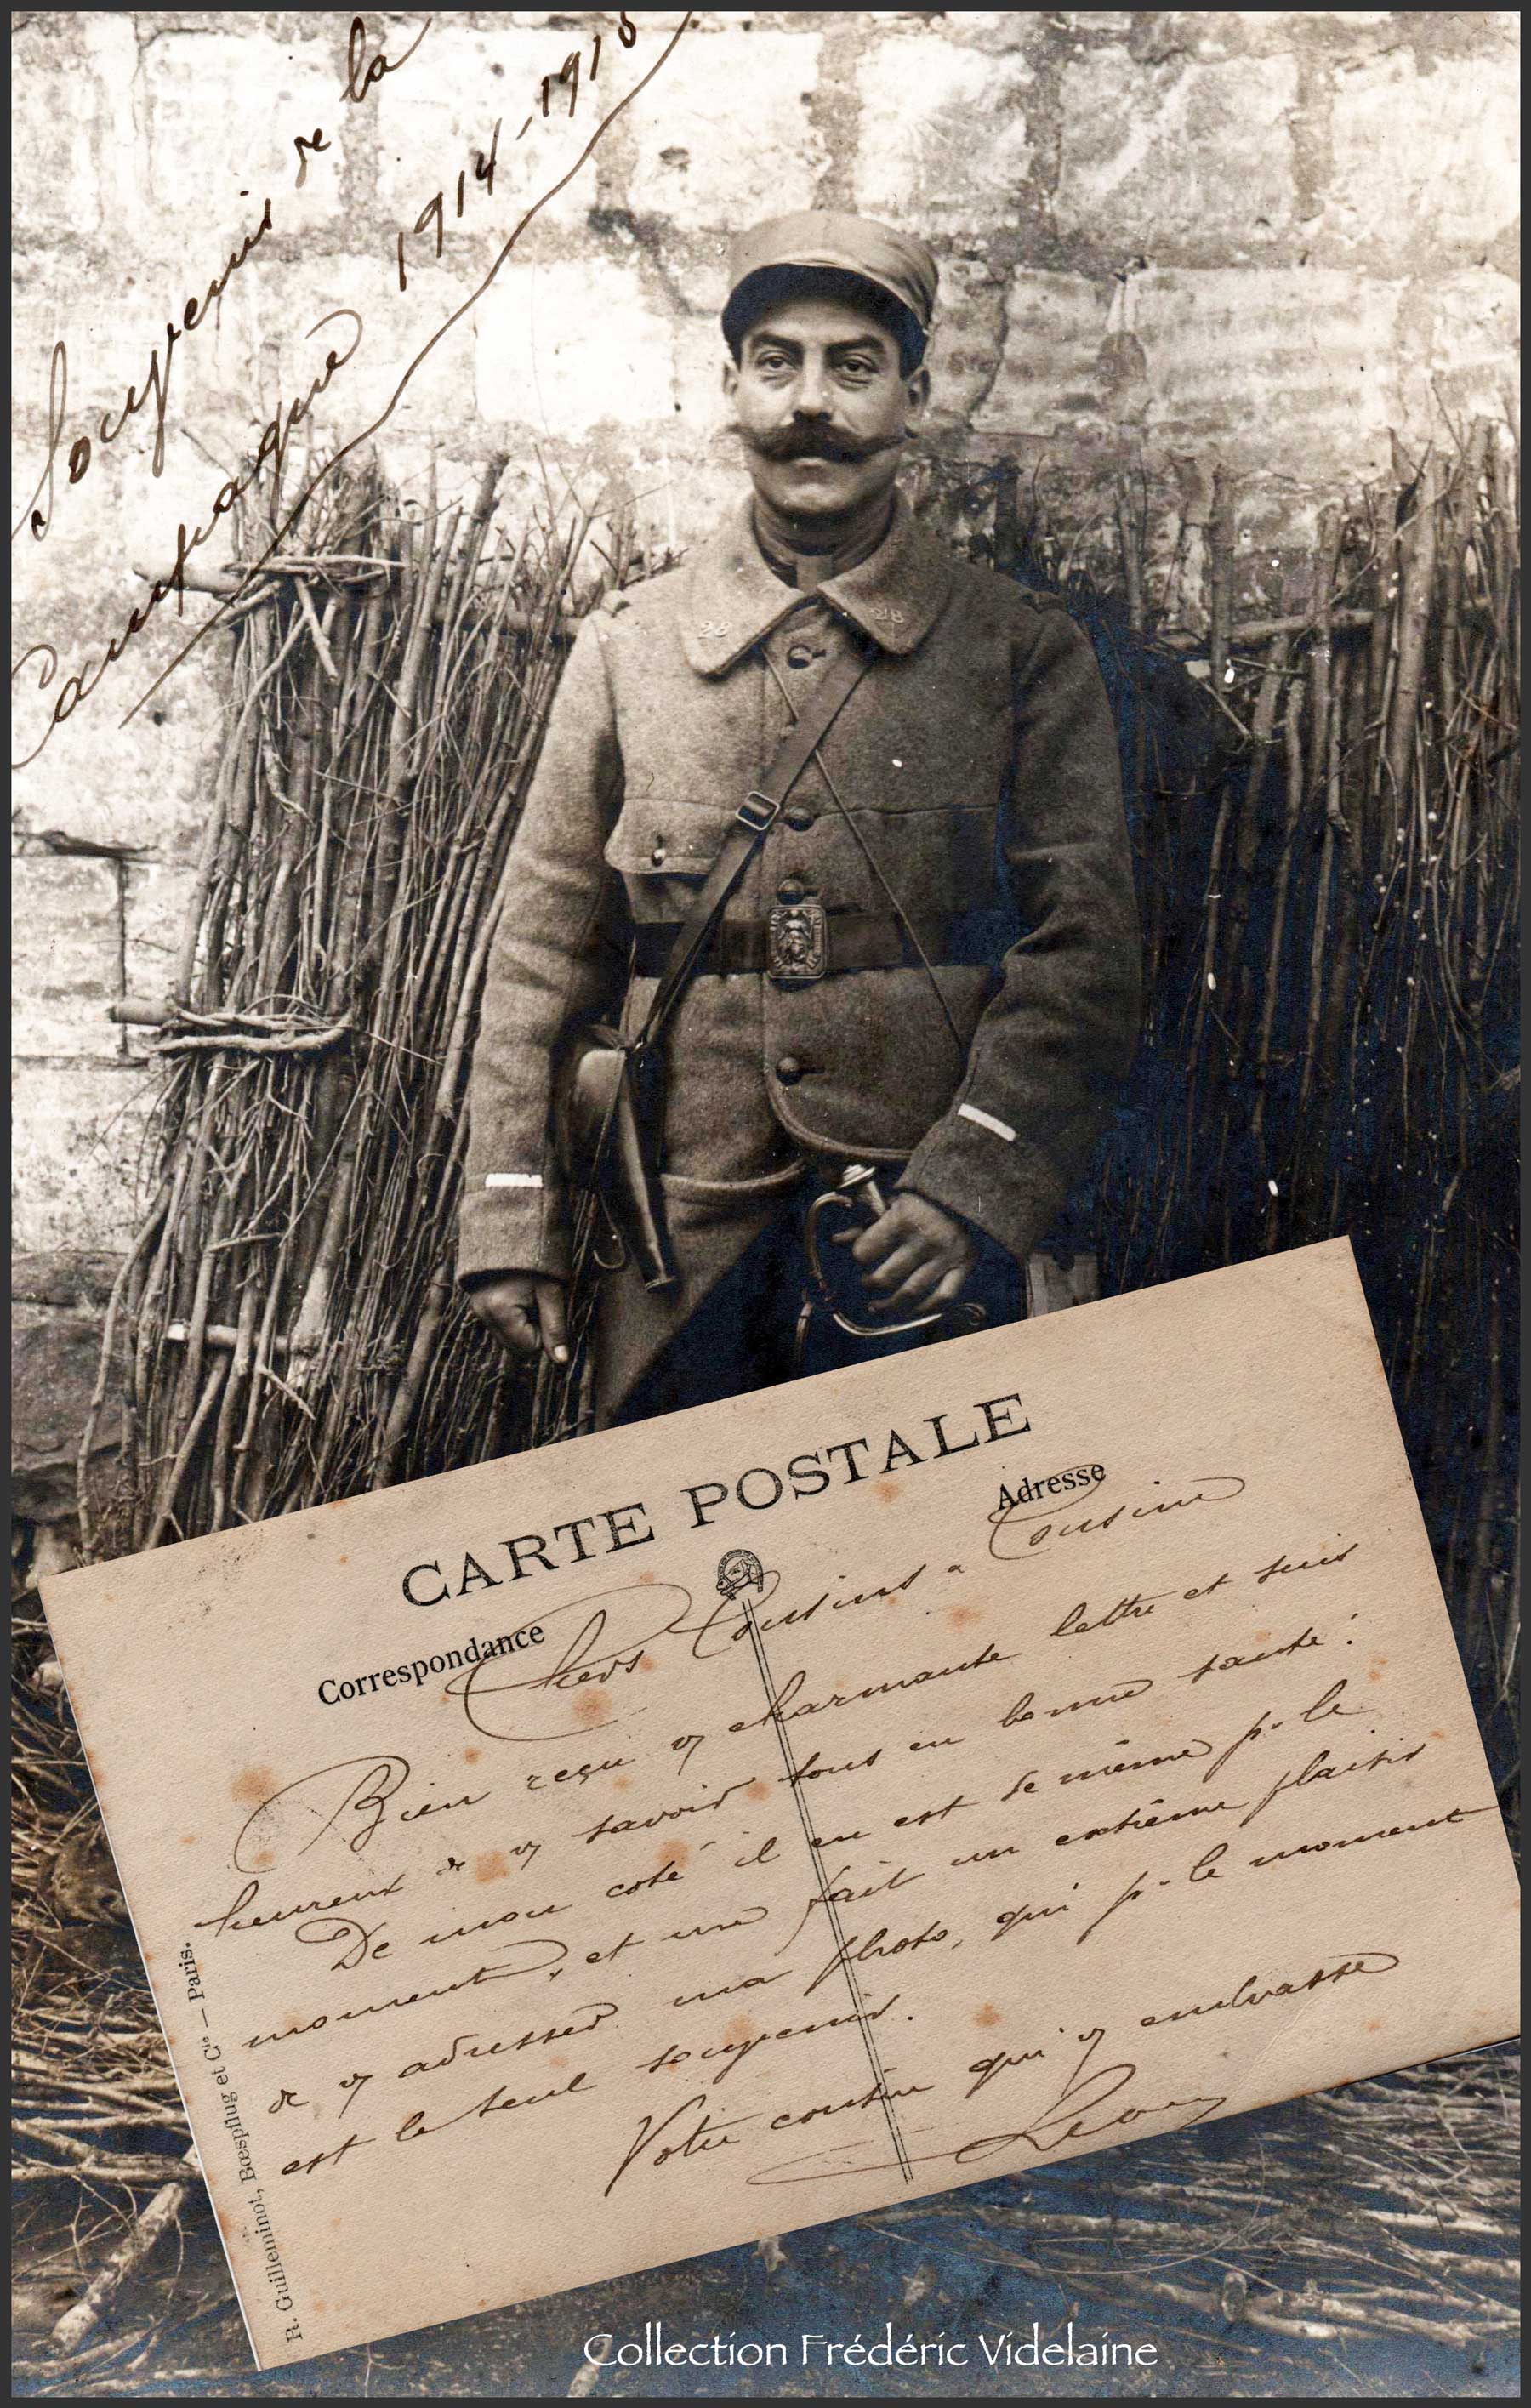 Souvenir de la
Campagne 1914-1915
28
28
CARTE POSTALE
Correspondance
Adresse
Chers Cousins & Cousine
Bien reçu vs charmante lettre et suis
heureux de vs savoir tous en bonne santé.
De mon coté il en est de même pr le
moment, et me fait un extrême plaisir
de vs adresser ma photo, qui pr le moment
est le seul souvenir.
Votre cousin qui vs embrasse
Léon
R. Guilleminot, Bœspflug et Cie — Paris.
Collection Frédéric Videlaine